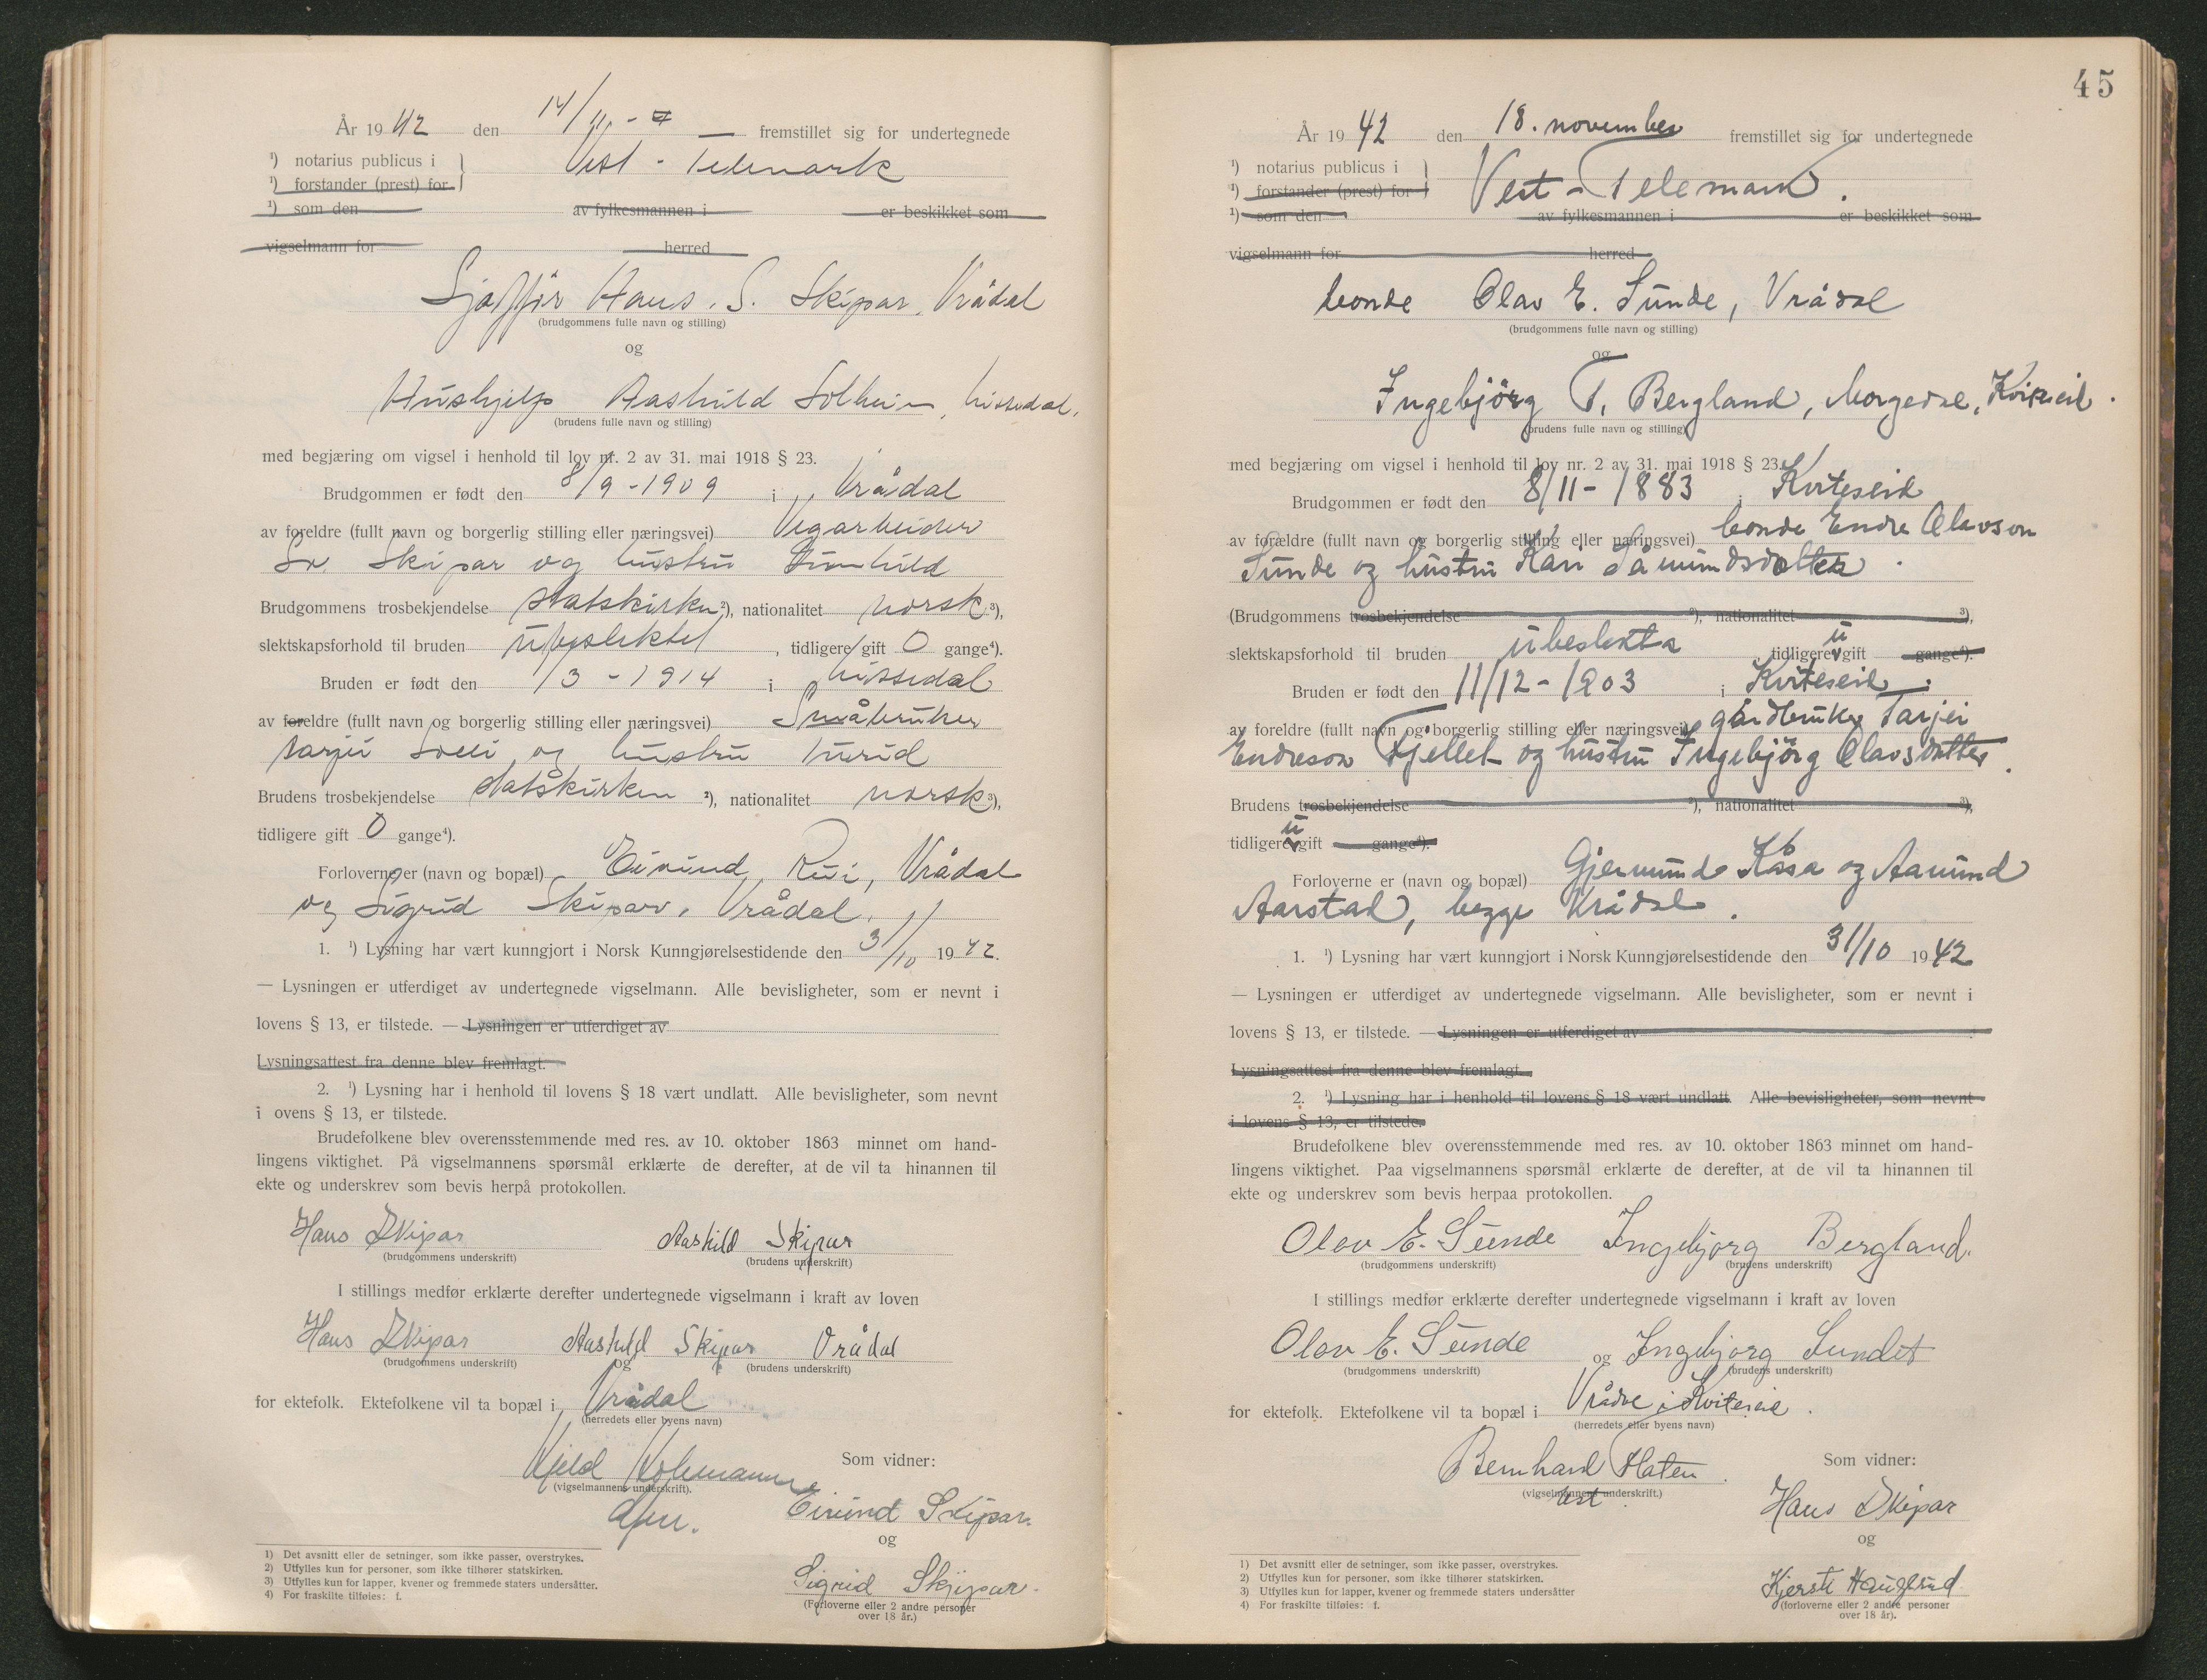 År 1942 den 14/11 - fremstillet sig for undertegnede
¹) notarius publicus i Vest - Telemark
¹) forstander (prest) for
¹) som den av fylkesmannen i er beskikket som
vigselmann for herred
Sjafför Hans S. Skipar, Vrådal
(brudgommens fulle navn og stilling)
og
Hushjelp Aashild Solheim, Nissedal.
(brudens fulle navn og stilling)
med begjæring om vigsel i henhold til lov nr. 2 av 31. mai 1918 § 23.
Brudgommen er født den 8/9 - 1909 i Vrådal
av foreldre (fullt navn og borgerlig stilling eller næringsvei) Vegarbeider
Sv. Skipar og hustru Gunhild
Brudgommens trosbekjendelse statskirken ²), nationalitet norsk ³),
slektskapsforhold til bruden ubeslektet, tidligere gift 0 gange⁴).
Bruden er født den /3 - 1914 i Nissedal
av foreldre (fullt navn og borgerlig stilling eller næringsvei) Småbruker
Tarjei og hustru Turid
Brudens trosbekjendelse statskirken ²), nationalitet norsk ³),
tidligere gift 0 gange⁴).
Forloverne er (navn og bopæl) Eivind Rui, Vrådal
og Sigrid Skipar, Vrådal.
1. ¹) Lysning har vært kunngjort i Norsk Kunngjørelsestidende den 31/10 1942.
— Lysningen er utferdiget av undertegnede vigselmann. Alle bevisligheter, som er nevnt i
lovens § 13, er tilstede. — Lysningen er utferdiget av
Lysningsattest fra denne blev fremlagt.
2. ¹) Lysning har i henhold til lovens § 18 vært undlatt. Alle bevisligheter, som nevnt
i ovens § 13, er tilstede.
Brudefolkene blev overensstemmende med res. av 10. oktober 1863 minnet om hand-
lingens viktighet. På vigselmannens spørsmål erklærte de derefter, at de vil ta hinannen til
ekte og underskrev som bevis herpå protokollen.
Hans Skipar Aashild Skipar
(brudgommens underskrift) (brudens underskrift)
I stillings medfør erklærte derefter undertegnede vigselmann i kraft av loven
Hans Skipar og Aashild Skipar Vrådal
(brudgommens underskrift) (brudens underskrift)
for ektefolk. Ektefolkene vil ta bopæl i Vrådal
(herredets eller byens navn)
Som vidner:
Kjeld
(vigselmannens underskrift).
Eivind Skipar.
og
Sigrid Skipar.
(Forloverne eller 2 andre personer
over 18 år.)
1) Det avsnitt eller de setninger, som ikke passer, overstrykes.
2) Utfylles kun for personer, som ikke tilhører statskirken.
3) Utfylles kun for lapper, kvener og fremmede staters undersåtter.
4) For fraskilte tilføies: f.
45
År 1942 den 18. november fremstillet sig for undertegnede
¹) notarius publicus i Vest-Telemark.
¹) forstander (prest) for
¹) som den av fylkesmannen i er beskikket som
vigselmann for herred
bonde Olav E. Sunde, Vrådal
(brudgommens fulle navn og stilling)
og
Ingebjörg T. Bergland, Morgedal, Kviteseid.
(brudens fulle navn og stilling)
med begjæring om vigsel i henhold til lov nr. 2 av 31. mai 1918 § 23.
Brudgommen er født den 8/11 - 1883 i Kviteseid
av forældre (fullt navn og borgerlig stilling eller næringsvei) bonde Endre Olavson
Sunde og hustru Kari Såmundsdotter.
(Brudgommens trosbekjendelse ²), nationalitet ³),
slektskapsforhold til bruden ubeslekta tidligere u gift gange⁴).
Bruden er født den 11/12 - 1903 i Kviteseid.
av foreldre (fullt navn og borgerlig stilling eller næringsvei) gårdbruker Tarjei
Endreson Fjellet og hustru Ingebjörg Olavsdotter.
Brudens trosbekjendelse ²), nationalitet ³),
tidligere u gift gange⁴).
Forloverne er (navn og bopæl) Gjermund Kåsa og Aamund
Aarstad, begge Vrådal.
1. ¹) Lysning har vært kunngjort i Norsk Kunngjørelsestidende den 31/10 1942
— Lysningen er utferdiget av undertegnede vigselmann. Alle bevisligheter, som er nevnt i
lovens § 13, er tilstede. — Lysningen er utferdiget av
Lysningsattest fra denne blev fremlagt.
2. ¹) Lysning har i henhold til lovens § 18 vært undlatt. Alle bevisligheter, som nevnt
i lovens § 13, er tilstede.
Brudefolkene blev overensstemmende med res. av 10. oktober 1863 minnet om hand-
lingens viktighet. Paa vigselmannens spørsmål erklærte de derefter, at de vil ta hinannen til
ekte og underskrev som bevis herpaa protokollen.
Olav E. Sunde Ingebjorg Bergland.
(brudgommens underskrift) (brudens underskrift)
I stillings medfør erklærte derefter undertegnede vigselmann i kraft av loven
Olav E. Sunde og Ingebjorg Sundet
(brudgommens underskrift) (brudens underskrift)
for ektefolk. Ektefolkene vil ta bopæl i Vrådal i Kviteseid.
(herredets eller byens navn)
Som vidner:
Bernhard Flaten.
(vigselmannens underskrift.)
Hans Skipar
og
Kjersti Hauglund
(forloverne eller 2 andre personer
over 18 år).
1) Det avsnitt eller de setninger, som ikke passer, overstrykes.
2) Utfylles kun for personer, som ikke tilhører statskirken.
3) Utfylles kun for lapper, kvener og fremmede staters undersåtter
4) For fraskilte tilføies: f.